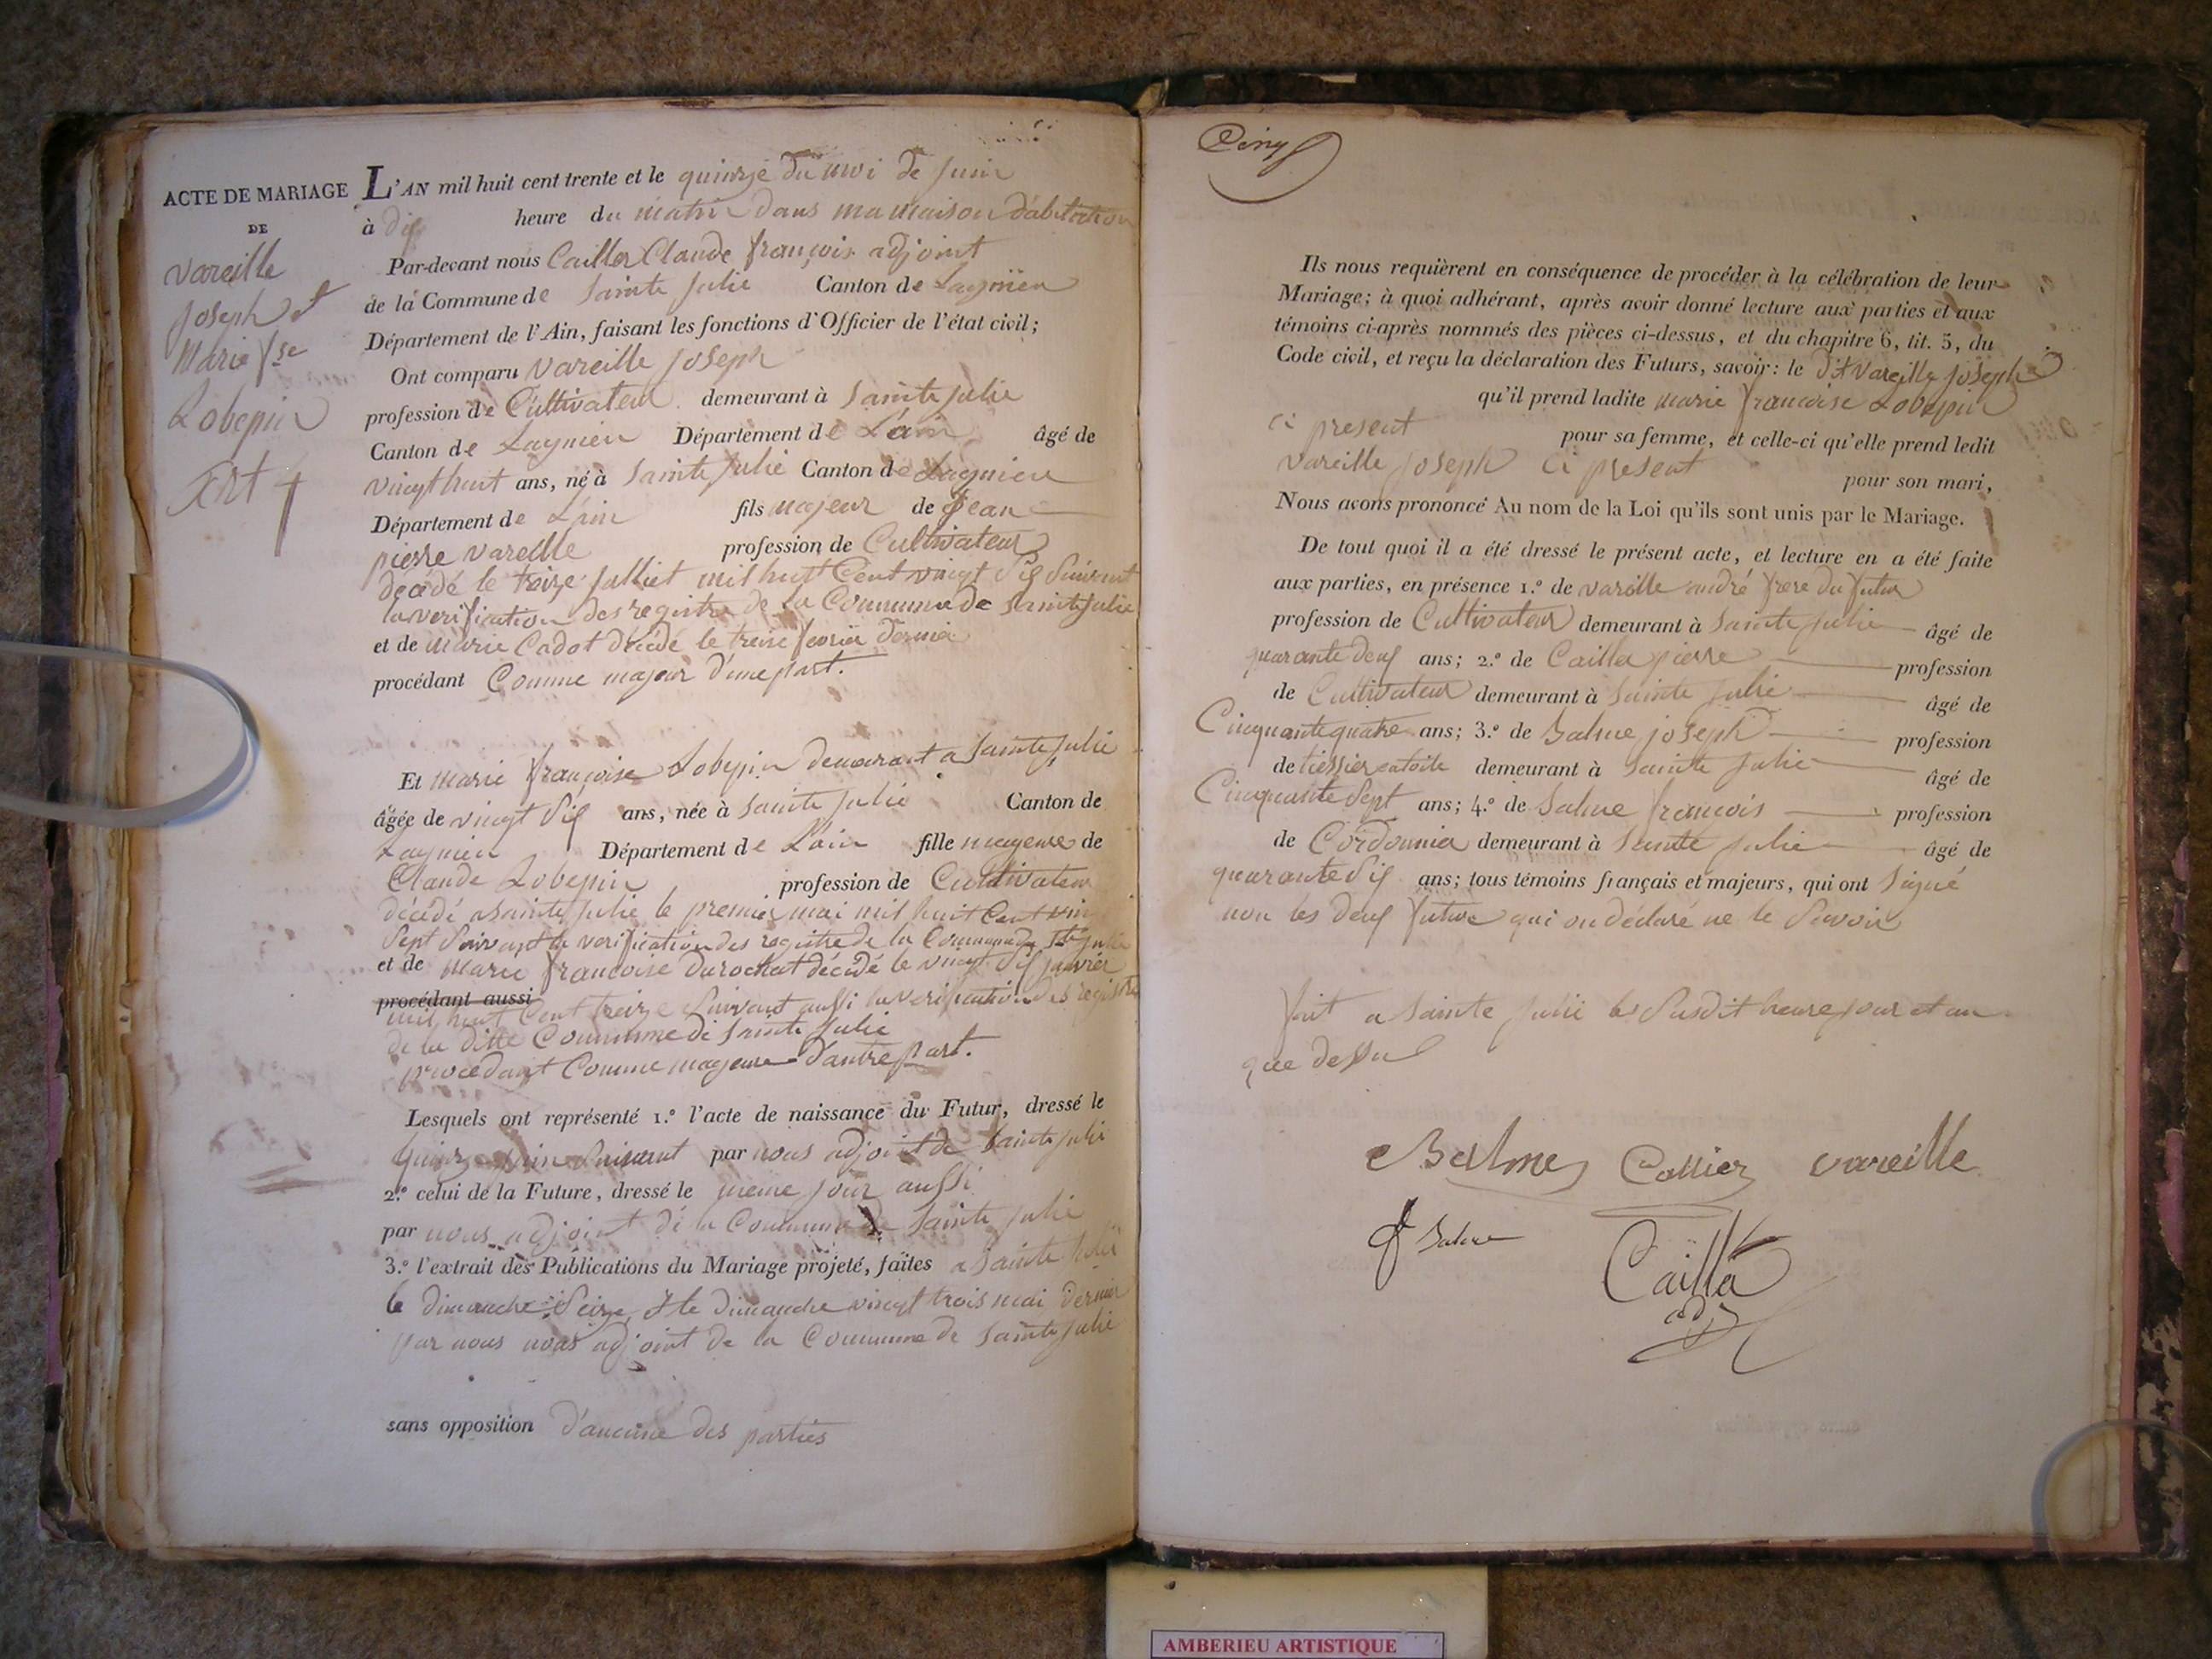 ACTE DE MARIAGE
DE
Vareille
Joseph et
Marie fse
Lobepin
Art 4
L'AN mil huit cent trente et le quinze du moi de juin
à dis heure du matin dans ma maison d'abitation
Par-devant nous Cailla Claude françois adjoint
de la Commune de Sainte Julie Canton de Lagnieu
Département de l'Ain, faisant les fonctions d'Officier de l'état civil;
Ont comparu Vareille Joseph
profession de Cultivateur demeurant à Sainte Julie
Canton de Lagnieu Département de L'ain âgé de
vingt huit ans, né à Sainte Julie Canton de Lagnieu
Département de L'ain fils majeur de Jean
pierre vareille profession de Cultivateur
décédé le treize julliet mil huit Cent vingt Sis Suivant
la verification des registre de la Commune de Sainte Julie
et de Marie Cadot décédé le treise fevrier dernier
procédant Comme majeur d'une part.
Et Marie françoise Lobepin demeurant a Sainte Julie
âgée de vingt Sis ans, née à Sainte Julie Canton de
Lagnieu Département de L'ain fille mageure de
Claude Lobepin profession de Cultivateur
décédé a Sainte Julie le premier mai mil huit Cent
Sept Suivant la verification des registre de la Commune de Ste Julie
et de Marie françoise Durochat décédé le vingt Sis janvier
procédant aussi
mil huit Cent treize Suivant aussi la verification des registre
de la ditte Commune de Sainte Julie
procedant Comme mageure d'autre part.
Lesquels ont représenté 1.º l'acte de naissance du Futur, dressé le
quinze juin Suivant par nous adjoint de Sainte Julie
2.º celui de la Future, dressé le meme jour aussi
par nous adjoint de la Commune de Sainte Julie
3.º l'extrait des Publications du Mariage projeté, faites a Sainte Julie
le dimanche Seize et le dimanche vingt trois mai dernier
par nous adjoint de la Commune de Sainte Julie
sans opposition d'aucune des parties
Cinq
Ils nous requièrent en conséquence de procéder à la célébration de leur
Mariage; à quoi adhérant, après avoir donné lecture aux parties et aux
témoins ci-après nommés des pièces ci-dessus, et du chapitre 6, tit. 5, du
Code civil, et reçu la déclaration des Futurs, savoir: le dit Vareille Joseph
qu'il prend ladite Marie françoise Lobepin
ci present pour sa femme, et celle-ci qu'elle prend ledit
Vareille Joseph ci present pour son mari,
Nous avons prononcé Au nom de la Loi qu'ils sont unis par le Mariage.
De tout quoi il a été dressé le présent acte, et lecture en a été faite
aux parties, en présence 1.º de vareille andré frere du futur
profession de Cultivateur demeurant à Sainte Julie âgé de
quarante deus ans; 2.º de Cailla pierre profession
de Cultivateur demeurant à Sainte Julie âgé de
Cinquante quatre ans; 3.º de Balme joseph profession
de tiessier a toile demeurant à Sainte Julie âgé de
Cinquante Sept ans; 4.º de Balme françois profession
de Cordonnier demeurant à Sainte Julie âgé de
quarante Sis ans; tous témoins français et majeurs, qui ont Signé
non les deus future qui on déclaré ne le Savoir
fait a Sainte Julie le Susdit heure jour et an
que dessu
Balme Callier vareille
f Balme
Cailla
adj
AMBERIEU ARTISTIQUE